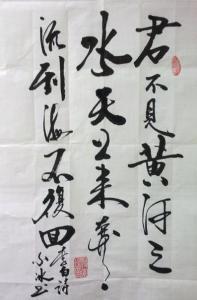 君不見黄河之
水天上来奔
流到海不復回
李白詩